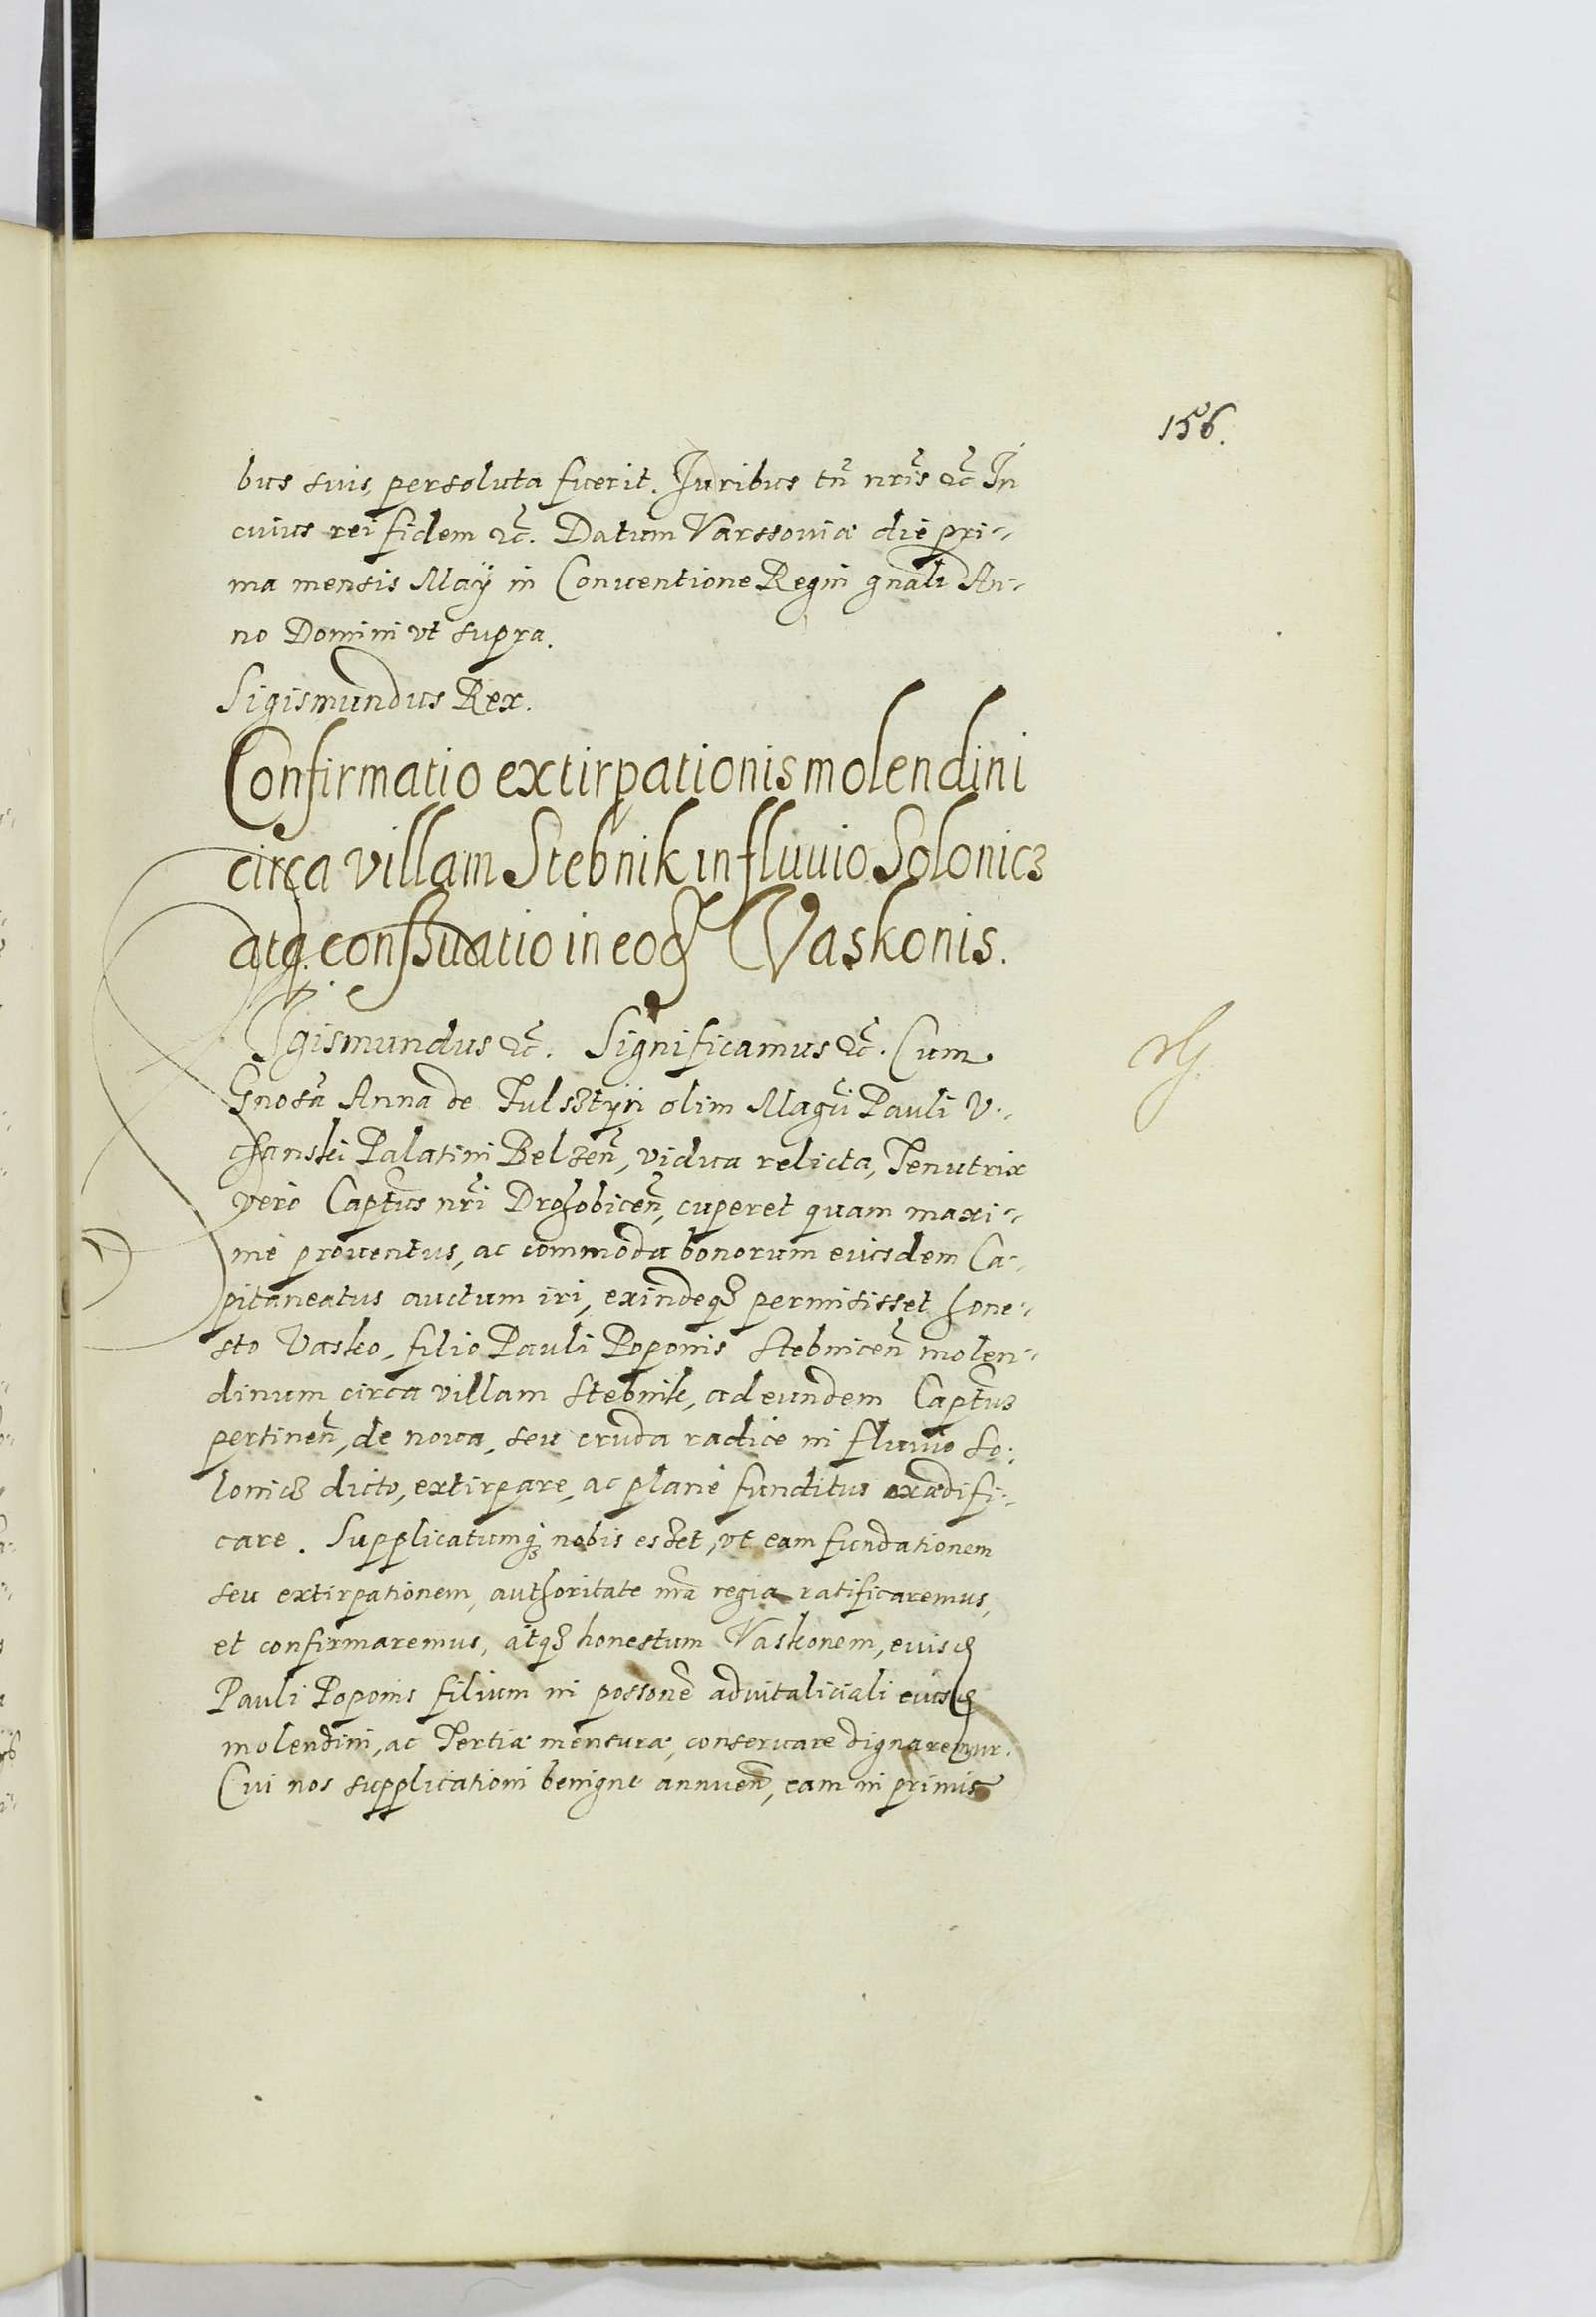 156.
bus suis, persoluta fuerit. Juribus tñ nr̃is &c̃ In
cuius rei fidem &c̃. Datum Varssouiæ die pri-
ma mensis Maÿ in Conuentione Regni gnãli An-
no Domini vt supra.
Sigismundus Rex.
Confirmatio extirpationis molendini
circa villam Stebnik in fluuio Solonicz
atq. conseruatio in eod Waskonis.
Sigismundus &c̃. Significamus &c̃. Cum
Gnosã Anna de Fulsztÿn olim Magcĩ Pauli V-
chanski Palatini Belzeñ, vidua relicta, Tenutrix
verò Captũs nr̃i Drohobiceñ, cuperet quam maxi-
mè prouentus, ac commoda bonorum eiusdem Ca-
pitaneatus auctum iri, exindeq3 permisisset hone-
sto Vasko, filio Pauli Poponis Stebniceñ molen-
dinum circa villam Stebnik, ad eundem Captũs
pertineñ, de noua, seu cruda radice in fluuio So-
lonicz dicto, extirpare, ac planè funditus exædifi-
care. Supplicatumq3 nobis esset, vt eam fundationem
seu extirpationem, authoritate nr̃a regia ratificaremus,
et confirmaremus, atq3 honestum Vaskonem, eiusd
Pauli Poponis filium in possonẽ aduitaliciali eiusd
molendini, ac Tertiæ mensuræ, conseruare dignaremur.
Cui nos supplicationi benigne annueñ, eam in primis